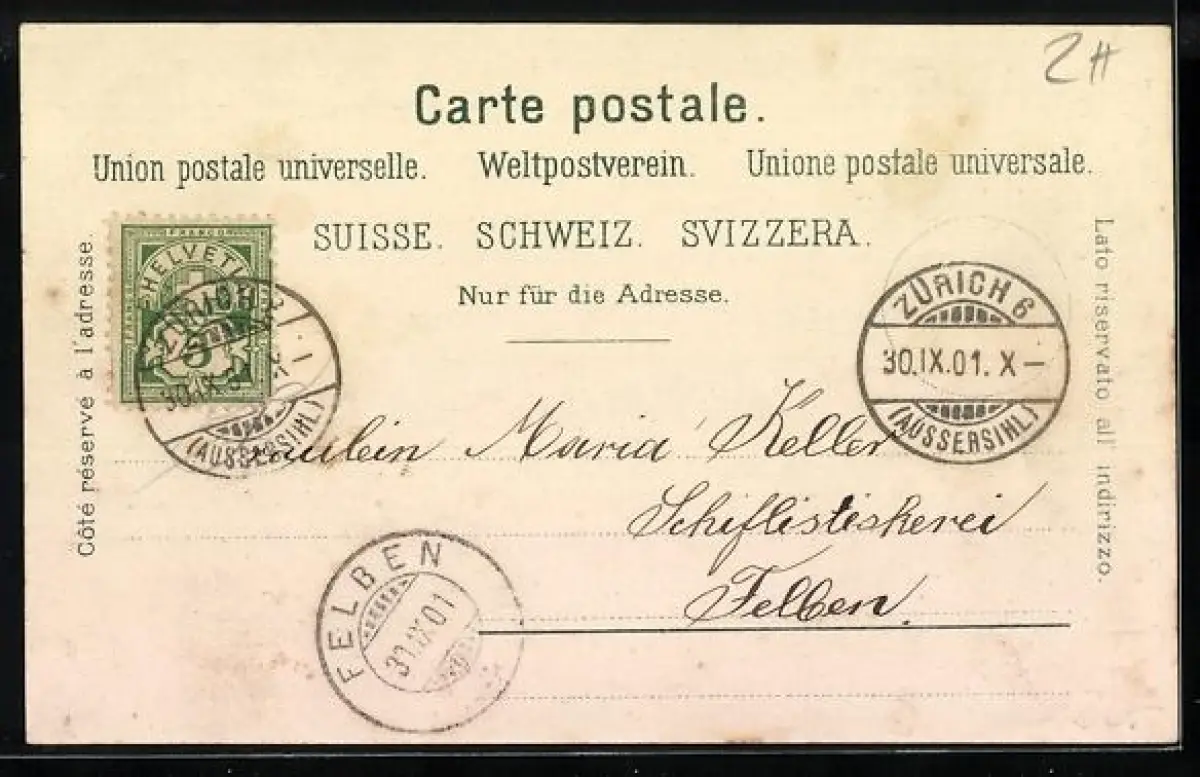 2#
Carte postale.
Union postale universelle. Weltpostverein. Unione postale universale.
SUISSE. SCHWEIZ. SVIZZERA.
Nur für die Adresse.
Côté réservé à l'adresse.
Lato riservato all' indirizzo.
FRANCO
HELVETIA
5
ZÜRICH
30.IX.01
(AUSSERSIHL)
ZÜRICH 6
30.IX.01. X–
(AUSSERSIHL)
Fräulein Maria Keller
Schiflistickerei
Felben.
FELBEN
30.IX.01